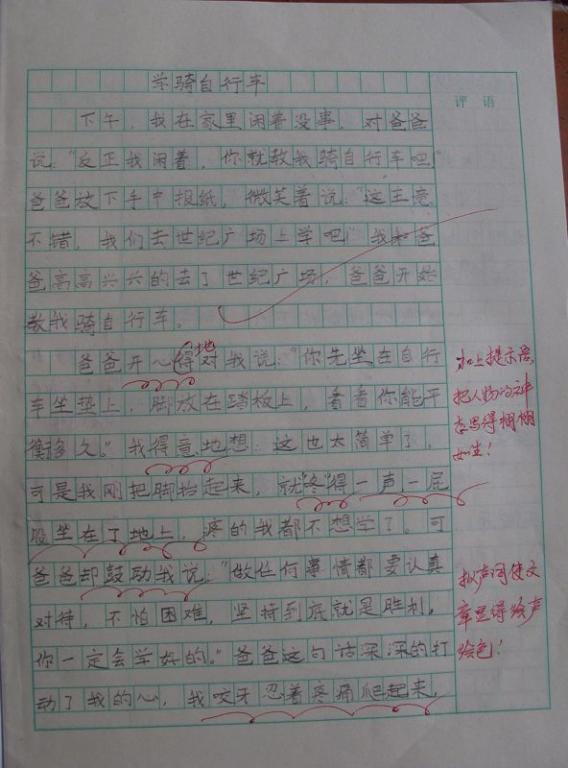 学骑自行车
评语
下午，我在家里闲着没事，对爸爸
说：“反正我闲着，你就教我骑自行车吧”
爸爸放下手中报纸，微笑着说：“这主意
不错，我们去世纪广场上学吧”我和爸
爸高高兴兴的去了世纪广场，爸爸开始
教我骑自行车。
爸爸开心得地对我说：“你先坐在自行
车坐垫上，脚放在踏板上，看看你能平
衡多久。”我得意地想：这也太简单了，
可是我刚把脚抬起来，就“咚”得一声一屁
股坐在了地上，疼的我都不想学了。可
爸爸却鼓励我说：“做任何事情都要认真
对待，不怕困难，坚持到底就是胜利，
你一定会学好的。”爸爸这句话深深的打
动了我的心，我咬牙忍着疼痛爬起来，
加上提示语，
把人物的神
态写得栩栩
如生！
拟声词使文
章写得绘声
绘色！